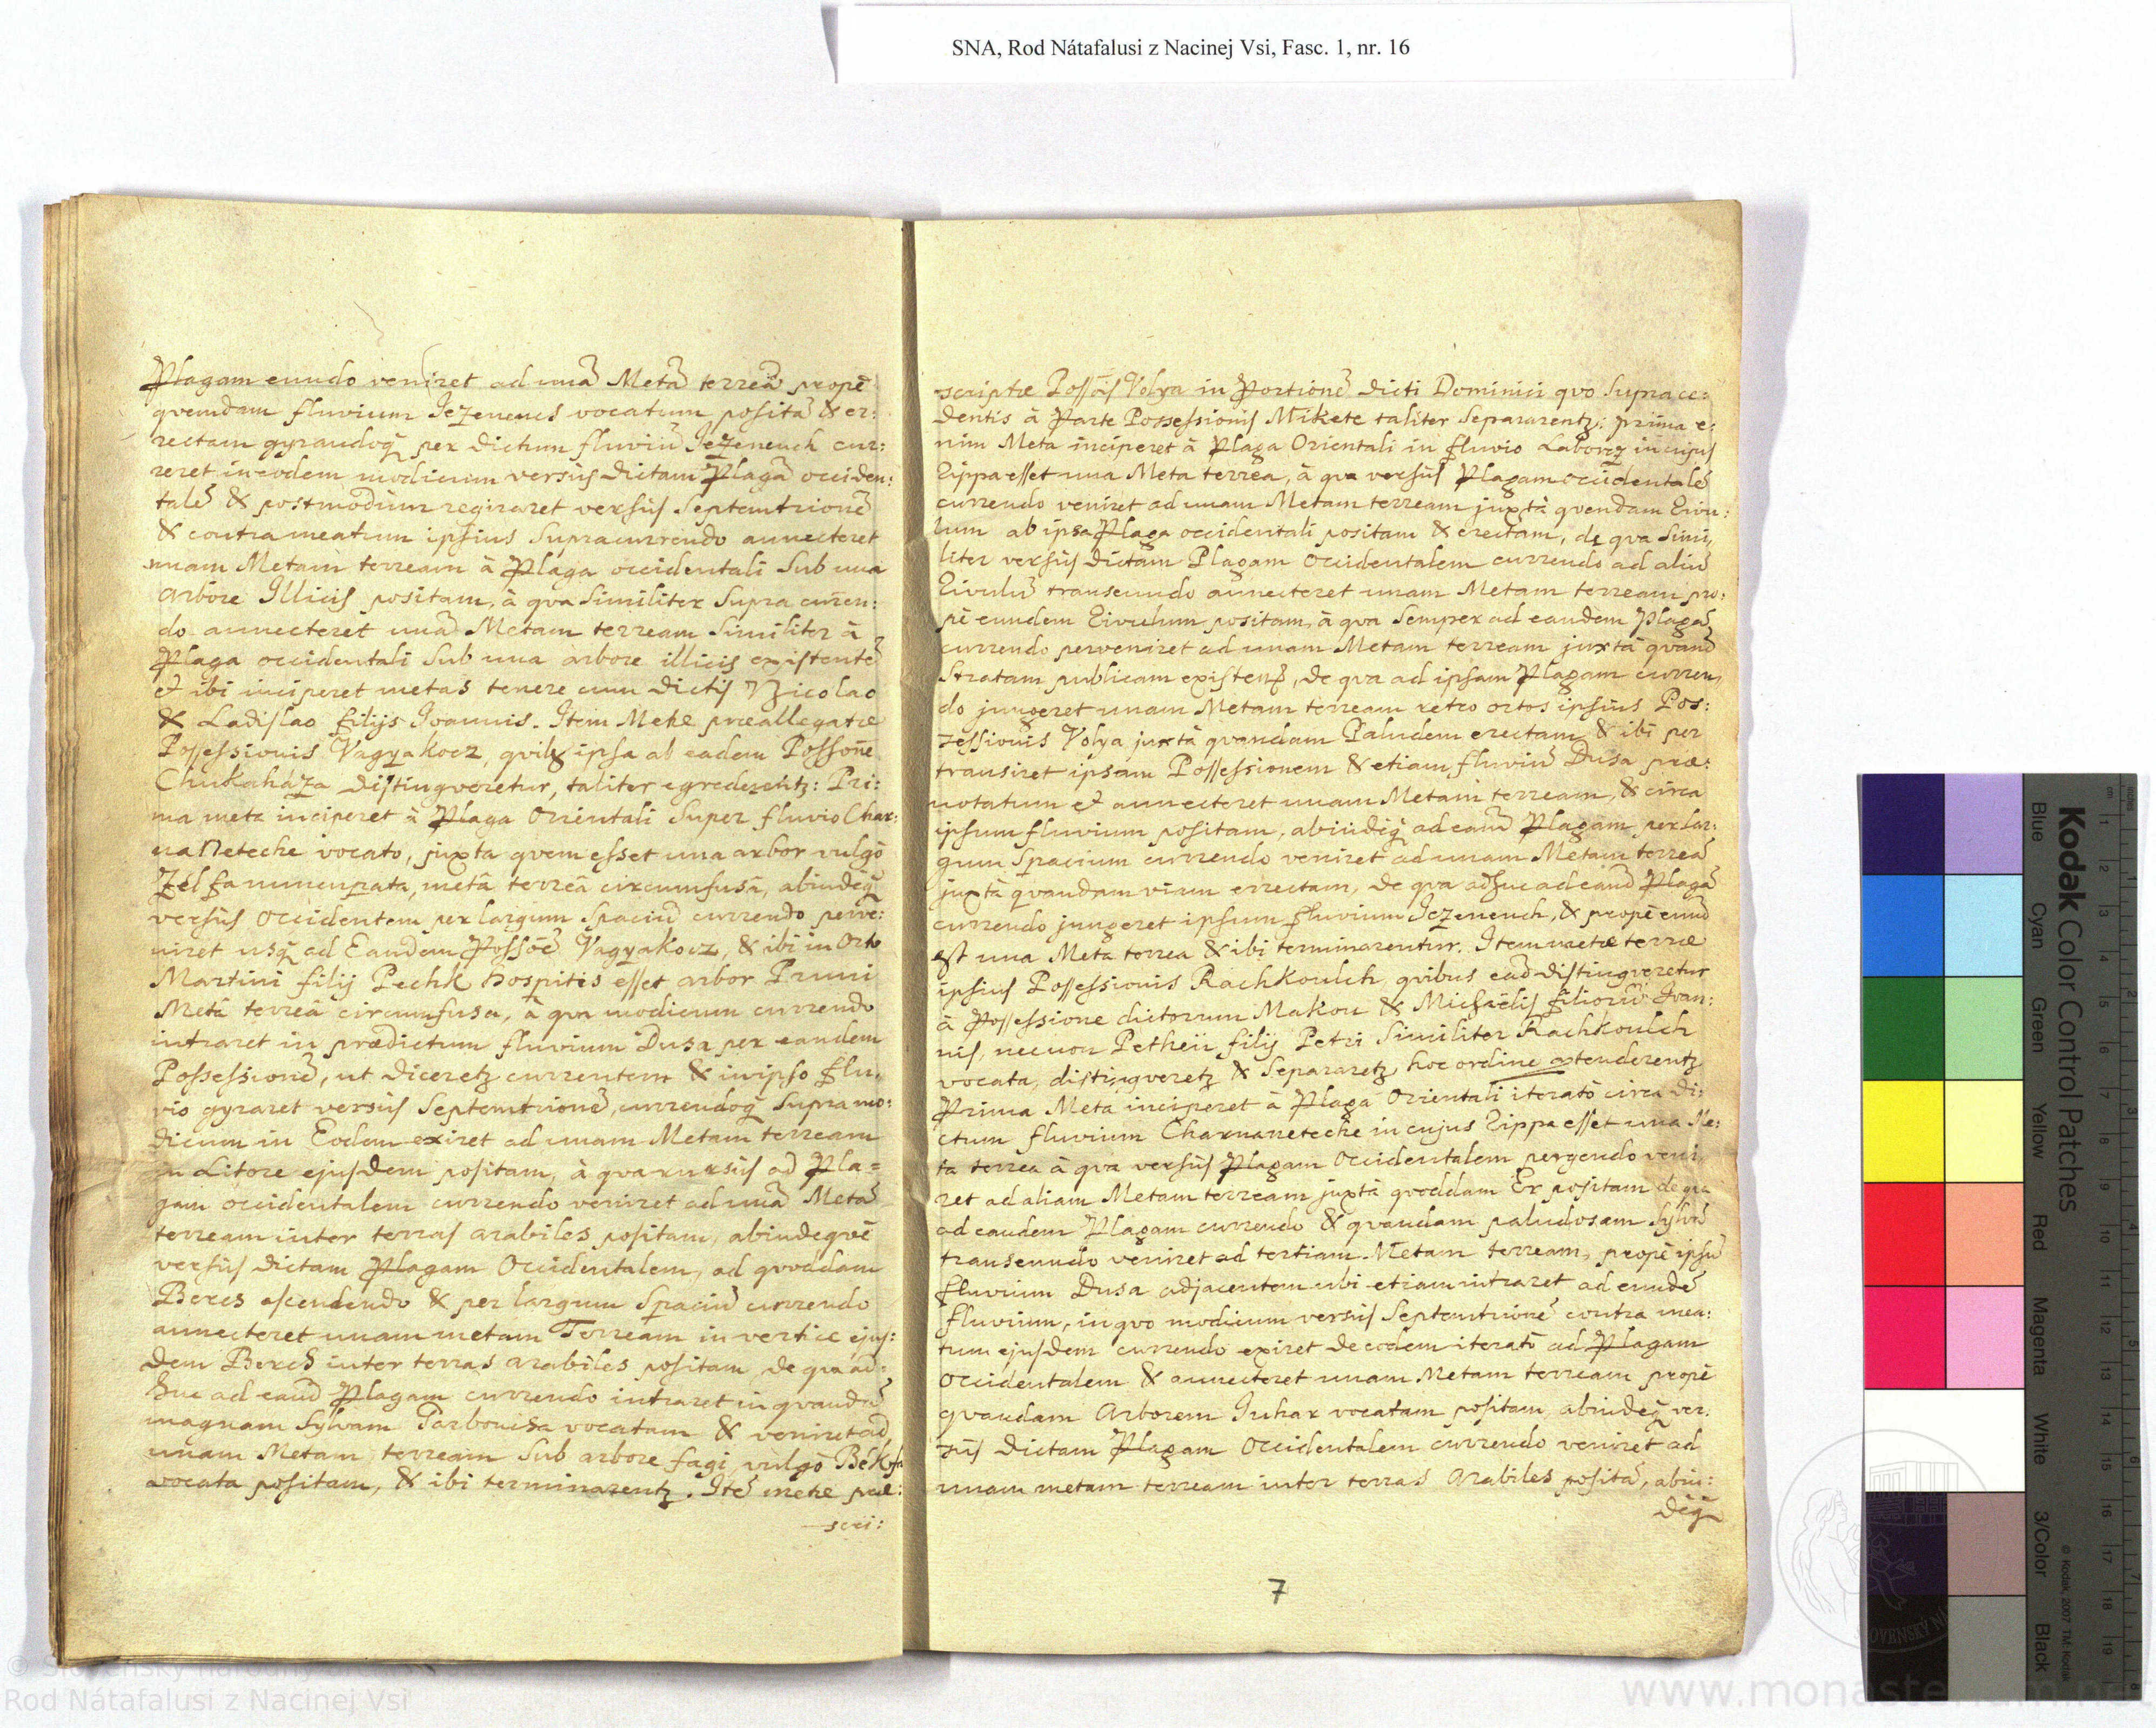 SNA, Rod Nátafalusi z Nacinej Vsi, Fasc. 1, nr. 16
Plagam eundo veniret ad unā Metā terreā propè
qvemdam fluvium Jezenencs vocatum positā & er:
rectam gyrandoq̃ per dictum fluviū Jezenench cur:
reret in eodem modicum versùs dictam Plagā occiden:
talē & postmodùm regiraret versùs Septemtrionē
& contra meatum ipsius supracurrendo annecteret
unam Metam terream à Plaga occidentali sub una
arbore Illicis positam, à qva similiter supra curren:
do annecteret unā Metam terream similiter à
Plaga occidentali sub una arbore illicis existentē
et ibi inciperet metas tenere cum dictis Nicolao
& Ladislao filijs Joannis. Item Metæ præallegatæ
Possessionis Vagyakocz, qvibz ipsa ab eadem Possone
Chukaháza distingveretur, taliter egrederentz: Pri:
ma meta inciperet à Plaga Orientali super fluvio Char:
naNeteche vocato, juxta qvem esset una arbor vulgò
Zél fa nuncupata, metâ terreâ circumfusâ, abindeq̃
versùs Occidentem per largum spaciū currendo perve:
niret usq̃ ad Eandem Possōē Vagyakocz, & ibi in Orto
Martini filij Pechk hospitis esset arbor Pruni
Metâ terreâ circumfusa, à qva modicum currendo
intraret in prædictum fluvium Dusa per eandem
Possessionē, ut diceretz currentem & in ipso flu:
vio gyraret versùs Septemtrionē, currendoq̃ supra mo:
dicum in Eodem exiret ad unam Metam terream
in Litore ejusdem positam, à qva rursùs ad Pla=
gam occidentalem currendo veniret ad unā Metā
terream inter terras arabiles positam, abindeqvè
versùs dictam Plagam Occidentalem, ad qvoddam
Bercs ascendendo & per largum Spaciū currendo
annecteret unam metam Terream in vertice ejus:
dem Berch inter terras arabiles positam, de qva ad:
huc ad eand Plagam currendo intraret in qvandā
magnam Sylvam Parboncha vocatam & veniret ad
unam Metam terream sub arbore fagi vulgò Békfa
vocata positam, & ibi terminarentz. Itē metæ præ:
scri:
scriptæ Possōis Volya in Portionē dicti Dominici qvo supra ce:
dentis à Parte Possessionis Mikete taliter Separarentz: prima e:
nim Meta inciperet à Plaga Orientali in fluvio Laborcz in cujus
Rippa esset una Meta terrea, à qva versùs Plagam occidentalē
currendo veniret ad unam Metam terream juxtà qvendam Rivu:
lum ab ipsa Plaga occidentali positam & erectam, de qva simi:
liter versùs dictam Plagam Occidentalem currendo ad aliū
Rivulū transeundo annecteret unam Metam terream pro:
pè eundem Rivulum positam, à qva semper ad eandem Plagā
currendo perveniret ad unam Metam terream juxtà qvand
Stratam publicam existen, de qva ad ipsam Plagam curren:
do jungeret unam Metam terream retro ortos ipsius Pos:
sessionis Volya juxtà qvandam Paludem erectam & ibi per
transiret ipsam Possessionem & etiam fluviū Dusa præ:
notatum et annecteret unam Metam terream, & circa
ipsum fluvium positam, abindeq̃ ad eand Plagam per lar:
gum Spacium currendo veniret ad unam Metam terreā
juxtà qvandam viam errectam, de qva adhuc ad eand Plagā
currendo jungeret ipsum fluvium Jezenench, & propè eund
est una Meta terrea & ibi terminarentur. Item metæ terræ
ipsius Possessionis Rachkoulch, qvibus ead distingveretur
à Possessione dictorum Makou & Michaëlis filiorū Ioan:
nis, necnon Petheù filij Petri similiter Rachkoulch
vocata, distingveretz & Separaretz hoc ordine extenderentz
Prima Meta inciperet à Plaga Orientali iteratò circa di:
ctum fluvium Charnaneteche in cujus Rippa esset una Me:
ta terrea à qva versùs Plagam Occidentalem pergendo veni
ret ad aliam Metam terream juxtà qvoddam Er positam de qva
ad eandem Plagam currendo & qvandam paludosam Sylvā
transeundo veniret ad tertiam Metam terream, propè ipsū
fluvium Dusa adjacentem ubi etiam intraret ad eundē
fluvium, in qvo modicum versùs Septemtrionē contra mea:
tum ejusdem currendo exiret de eodem iteratò ad Plagam
Occidentalem & annecteret unam Metam terream propè
qvandam Arborem Juhar vocatam positam, abindeq̃ ver:
sùs dictam Plagam Occidentalem currendo veniret ad
unam metam terream inter terras Arabiles positā, abin:
deq̃
7
Kodak Color Control Patches
Blue Cyan Green Yellow Red Magenta White 3/Color Black
© Kodak, 2007 TM: Kodak
Rod Nátafalusi z Nacinej Vsi
www.monasterium.net